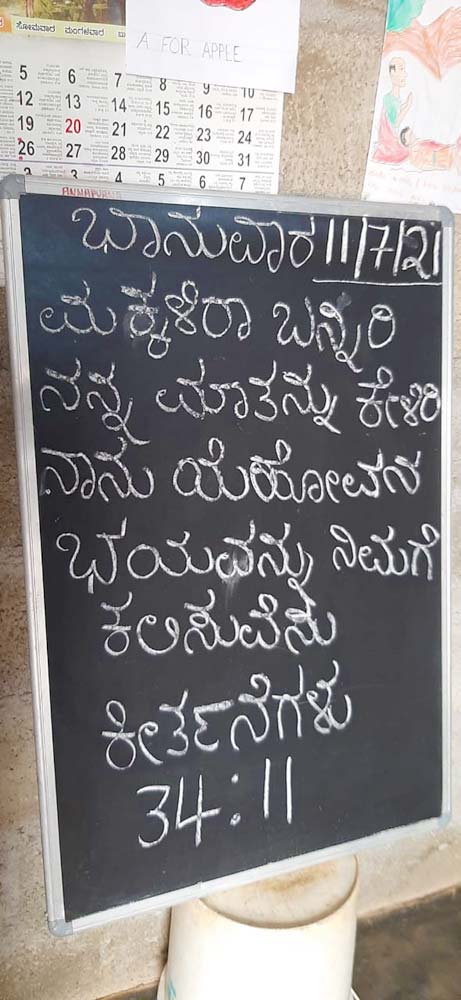 ಸೋಮವಾರ ಮಂಗಳವಾರ
A FOR APPLE
5 6 7 8 9 10
12 13 14 15 16 17
19 20 21 22 23 24
26 27 28 29 30 31
3 4 5 6 7
ಭಾನುವಾರ 11/7/21
ಮಕ್ಕಳಿರಾ ಬನ್ನಿರಿ
ನನ್ನ ಮಾತನ್ನು ಕೇಳಿರಿ
ನಾನು ಯೆಹೋವನ
ಭಯವನ್ನು ನಿಮಗೆ
ಕಲಿಸುವೆನು
ಕೀರ್ತನೆಗಳು
34:11